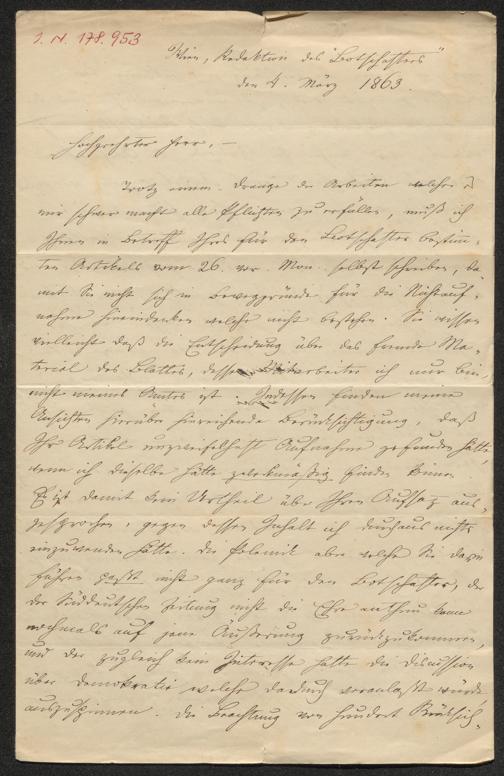 I. N. 178.953
Wien, Redaktion des "Botschafters"
den 4. März 1863.
Hochgeehrter Herr, —
Trotz einem Drange der Arbeiten welcher es
mir schwer macht alle Pflichten zu erfüllen, muß ich
Ihnen in Betreff Ihres für den Botschafter bestim-
ten Artikels vom 26. vor. Mon. selbst schreiben, da-
mit Sie nicht sich in Beweggründe für die Nichtauf-
nahme hineindenken welche nicht bestehen. Sie wissen
vielleicht daß die Entscheidung über das fremde Ma-
terial des Blattes, dessen Mitarbeiter ich nur bin,
nicht meines Amtes ist. Indessen finden meine
Ansichten hierüber hinreichende Berücksichtigung, daß
Ihr Artikel unzweifelhaft Aufnahme gefunden hätte,
wenn ich dieselbe hätte zweckmäßig finden können.
Es ist damit kein Urtheil über Ihren Aufsaz aus-
gesprochen, gegen dessen Inhalt ich durchaus nichts
einzuwenden hätte. Die Polemik aber welche Sie darin
führen paßt nicht ganz für den Botschafter, der
der Süddeutschen Zeitung nicht die Ehre anthun kann
nochmals auf jene Äußerung zurückzukommen,
und der zugleich kein Interesse hatte die Discussion
über Demokratie welche dadurch veranlaßt würde,
auszuspinnen. Die Beachtung von hundert Rücksich-